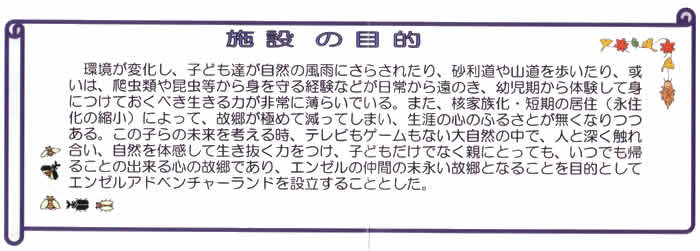 施設の目的
環境が変化し、子ども達が自然の風雨にさらされたり、砂利道や山道を歩いたり、或
いは、爬虫類や昆虫等から身を守る経験などが日常から遠のき、幼児期から体験して身
につけておくべき生きる力が非常に薄らいでいる。また、核家族化・短期の居住（永住
化の縮小）によって、故郷が極めて減ってしまい、生涯の心のふるさとが無くなりつつ
ある。この子らの未来を考える時、テレビもゲームもない大自然の中で、人と深く触れ
合い、自然を体感して生き抜く力をつけ、子どもだけでなく親にとっても、いつでも帰
ることの出来る心の故郷であり、エンゼルの仲間の末永い故郷となることを目的として
エンゼルアドベンチャーランドを設立することとした。